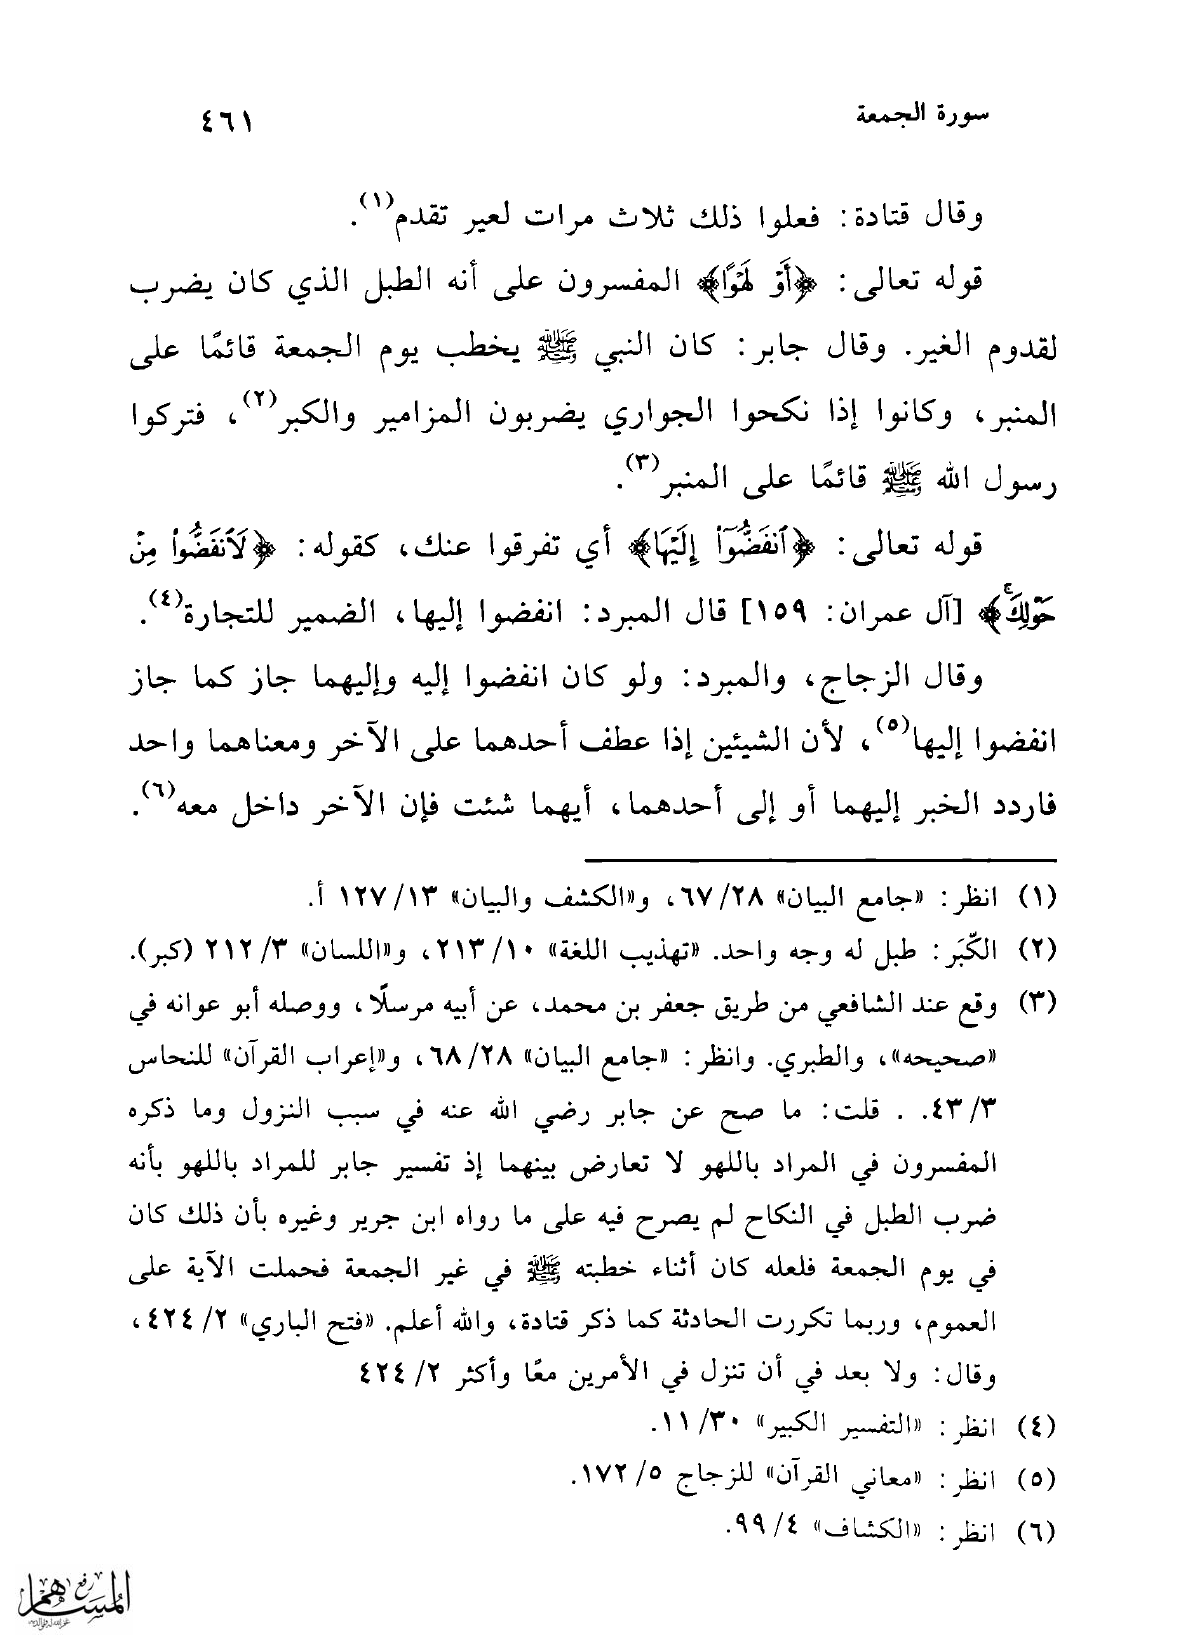 سورة الجمعة
٤٦١
وقال قتادة: فعلوا ذلك ثلاث مرات لعير تقدم(١).
قوله تعالى: ﴿أَوْ لَهْوًا﴾ المفسرون على أنه الطبل الذي كان يضرب
لقدوم الغير. وقال جابر: كان النبي ﷺ يخطب يوم الجمعة قائمًا على
المنبر، وكانوا إذا نكحوا الجواري يضربون المزامير والكبر(٢)، فتركوا
رسول الله ﷺ قائمًا على المنبر(٣).
قوله تعالى: ﴿ٱنفَضُّوٓا۟ إِلَيْهَا﴾ أي تفرقوا عنك، كقوله: ﴿لَٱنفَضُّوا۟ مِنْ
حَوْلِكَ ۚ﴾ [آل عمران: ١٥٩] قال المبرد: انفضوا إليها، الضمير للتجارة(٤).
وقال الزجاج، والمبرد: ولو كان انفضوا إليه وإليهما جاز كما جاز
انفضوا إليها(٥)، لأن الشيئين إذا عطف أحدهما على الآخر ومعناهما واحد
فاردد الخبر إليهما أو إلى أحدهما، أيهما شئت فإن الآخر داخل معه(٦).
(١) انظر: «جامع البيان» ٢٨/ ٦٧، و«الكشف والبيان» ١٣/ ١٢٧ أ.
(٢) الكَّبَر: طبل له وجه واحد. «تهذيب اللغة» ١٠/ ٢١٣، و«اللسان» ٣/ ٢١٢ (كبر).
(٣) وقع عند الشافعي من طريق جعفر بن محمد، عن أبيه مرسلًا، ووصله أبو عوانه في
«صحيحه»، والطبري. وانظر: «جامع البيان» ٢٨/ ٦٨، و«إعراب القرآن» للنحاس
٣/ ٤٣. . قلت: ما صح عن جابر رضي الله عنه في سبب النزول وما ذكره
المفسرون في المراد باللهو لا تعارض بينهما إذ تفسير جابر للمراد باللهو بأنه
ضرب الطبل في النكاح لم يصرح فيه على ما رواه ابن جرير وغيره بأن ذلك كان
في يوم الجمعة فلعله كان أثناء خطبته ﷺ في غير الجمعة فحملت الآية على
العموم، وربما تكررت الحادثة كما ذكر قتادة، والله أعلم. «فتح الباري» ٢/ ٤٢٤،
وقال: ولا بعد في أن تنزل في الأمرين معًا وأكثر ٢/ ٤٢٤
(٤) انظر: «التفسير الكبير» ٣٠/ ١١.
(٥) انظر: «معاني القرآن» للزجاج ٥/ ١٧٢.
(٦) انظر: «الكشاف» ٤/ ٩٩.